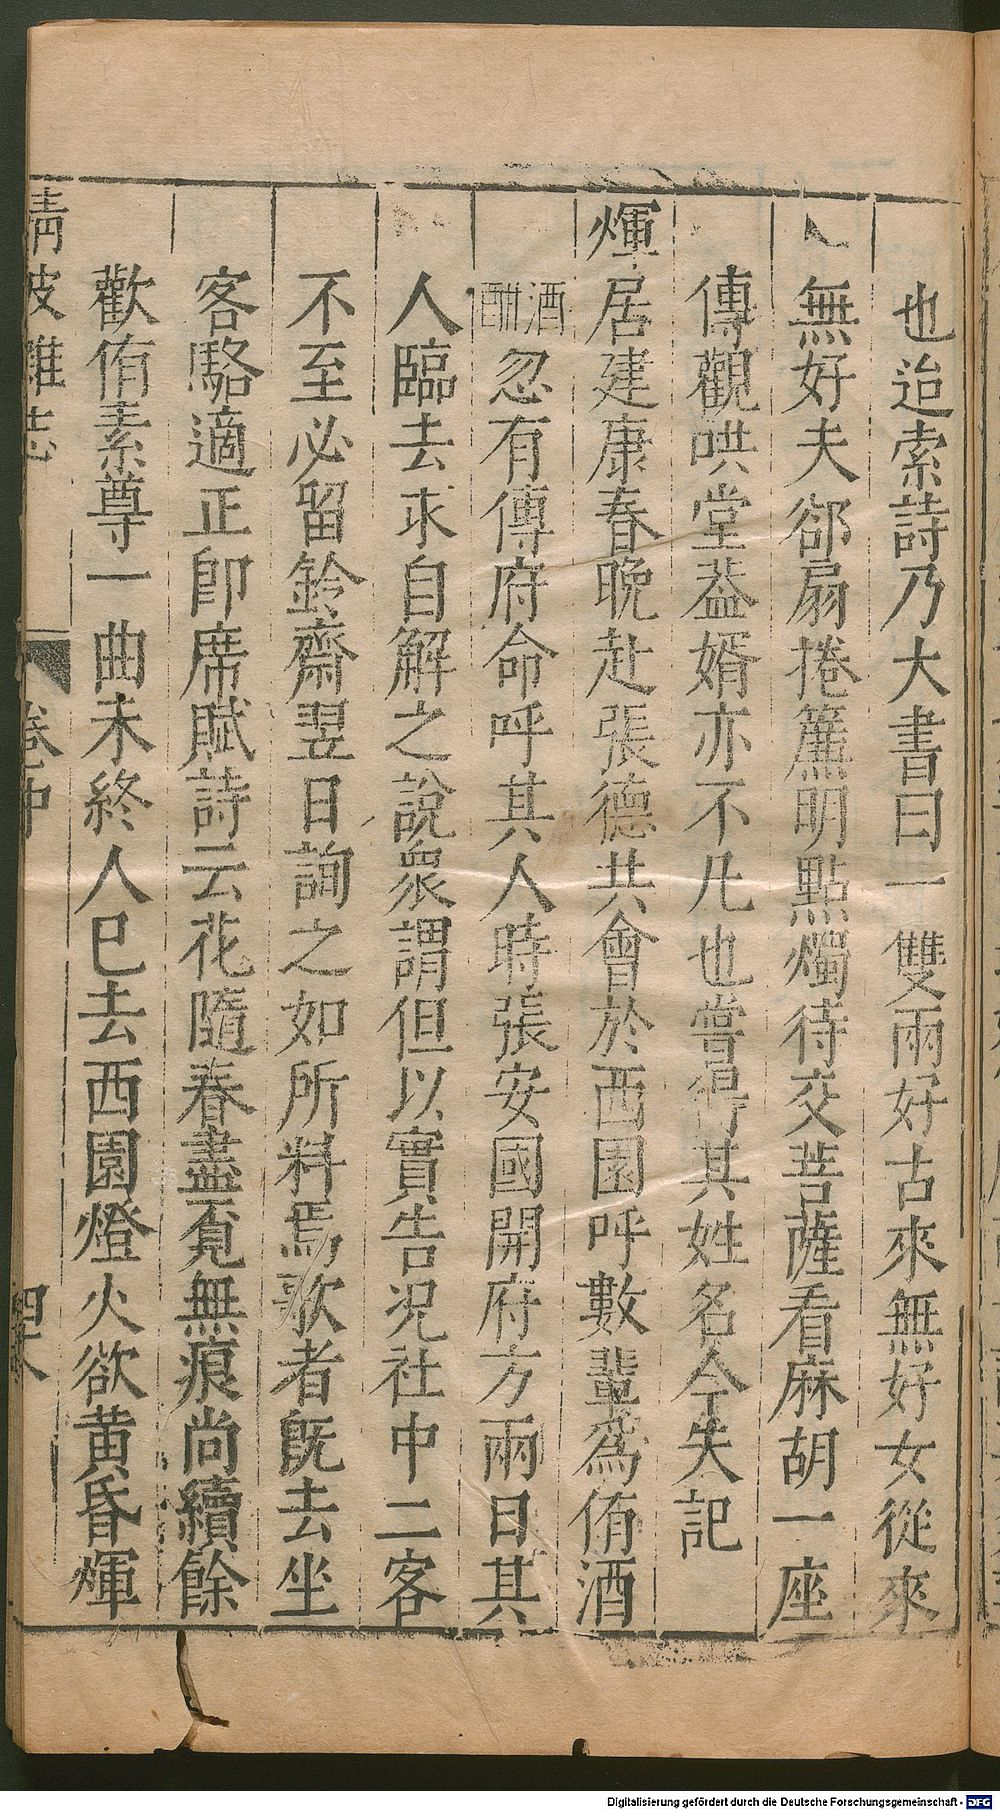 也迨索詩乃大書曰一雙兩好古來無好女從來
無好夫卻扇捲簾明點燭待交菩薩看麻胡一座
傳觀哄堂葢婿亦不凡也嘗得其姓名今失記
煇居建康春晚赴張德共會於西園呼數輩為侑酒
酒酣忽有傳府命呼其人時張安國開府方兩日其
人臨去求自解之說衆謂但以實告況社中二客
不至必留鈴齋翌日詢之如所料焉歌者旣去坐
客駱適正卽席賦詩云花隨春盡覓無痕尚續餘
歡侑素尊一曲未終人巳去西園燈火欲黃昏煇
清波雜志
卷中
Digitalisierung gefördert durch die Deutsche Forschungsgemeinschaft - DFG